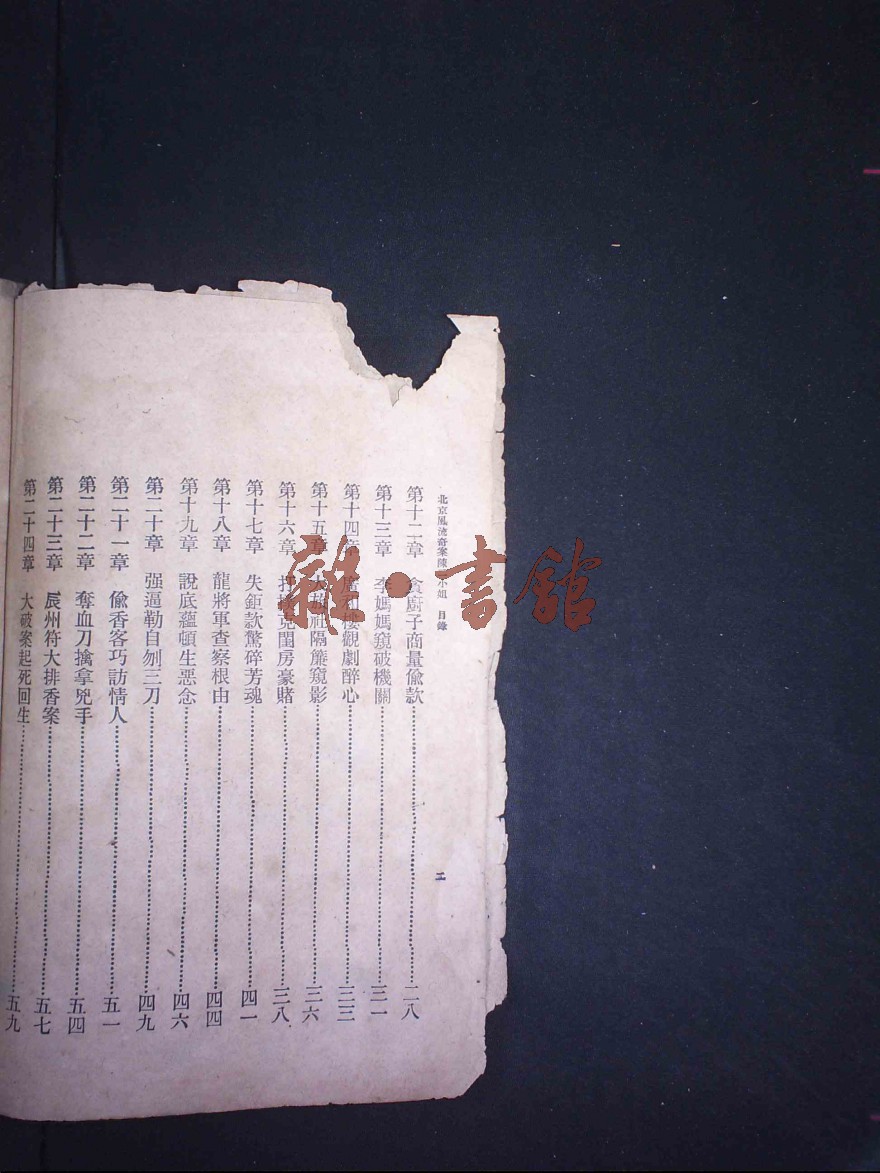 北京風流奇案陳小姐　目錄　二
第十二章　貪廚子商量偸款……二八
第十三章　李媽媽窺破機關……三一
第十四章　廣和樓觀劇醉心……三三
第十五章　隔簾窺影……三六
第十六章　押撲克閨房豪賭……三八
第十七章　失鉅款驚碎芳魂……四一
第十八章　龍將軍查察根由……四四
第十九章　說底蘊頓生惡念……四六
第二十章　强逼勒自刎三刀……四九
第二十一章　偸香客巧訪情人……五一
第二十二章　奪血刀擒拿兇手……五四
第二十三章　辰州符大排香案……五七
第二十四章　大破案起死回生……五九
雜·書館